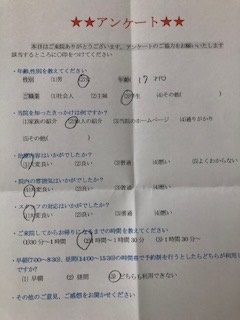 ★★アンケート★★
本日はご来院ありがとうございます。アンケートのご協力をお願いいたします
該当するところに○印をつけてください。
・年齢,性別を教えてください
性別 (1)男 (2)女 年齢 17才
ご職業 (1)社会人 (2)主婦 (3)学生 (4)その他( )
・当院を知ったきっかけは何ですか?
(1)家族の紹介 (2)知人の紹介 (3)当院のホームページ (4)通りがかり
(5)その他( )
・治療内容はいかがでしたか?
(1)大変良い (2)良い (3)普通 (4)悪い (5)よくわからない
・院内の雰囲気はいかがでしたか?
(1)大変良い (2)良い (3)普通 (4)悪い
・スタッフの対応はいかがでしたか?
(1)大変良い (2)良い (3)普通 (4)悪い
・ご来院してからお帰りになるまでの時間を教えてください
(1)30分~1時間 (2)1時間~1時間30分 (3)1時間30分~
・早朝(7:00~8:30)、昼間(14:00~15:30)の時間帯で予約制を行うとしたらどちらが利用
ですか?
(1) 早朝 (2) 昼間 (3)どちらも利用できない
・その他のご意見、ご感想をお聞かせください